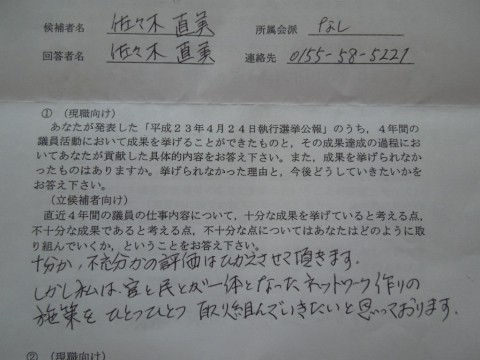 候補者名 佐々木 直美 所属会派 なし
回答者名 佐々木 直美 連絡先 0155-58-5221
① （現職向け）
あなたが発表した「平成２３年４月２４日執行選挙公報」のうち，４年間の
議員活動において成果を挙げることができたものと，その成果達成の過程にお
いてあなたが貢献した具体的内容をお答え下さい。また，成果を挙げられなか
ったものはありますか。挙げられなかった理由と，今後どうしていきたいかを
お答え下さい。
（立候補者向け）
直近４年間の議員の仕事内容について，十分な成果を挙げていると考える点，
不十分な成果であると考える点，不十分な点についてはあなたはどのように取
り組んでいくか，ということをお答え下さい。
十分か、不充分かの評価はひかえさせて頂きます。
しかし私は、官と民とが一体となった、ネットワーク作りの
施策を ひとつひとつ 取り組んでいきたいと思っております。
② （現職向け）